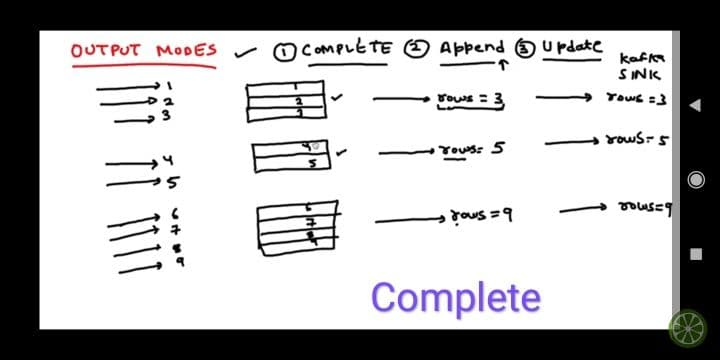 OUTPUT MODES ✓ ① COMPLETE ② Append ③ Update
Kafka
SINK
1
2
3
1
2
3
rows = 3
rows = 3
4
5
4
5
rows = 5
rows = 5
6
7
8
9
6
7
8
9
rows = 9
rows = 9
Complete